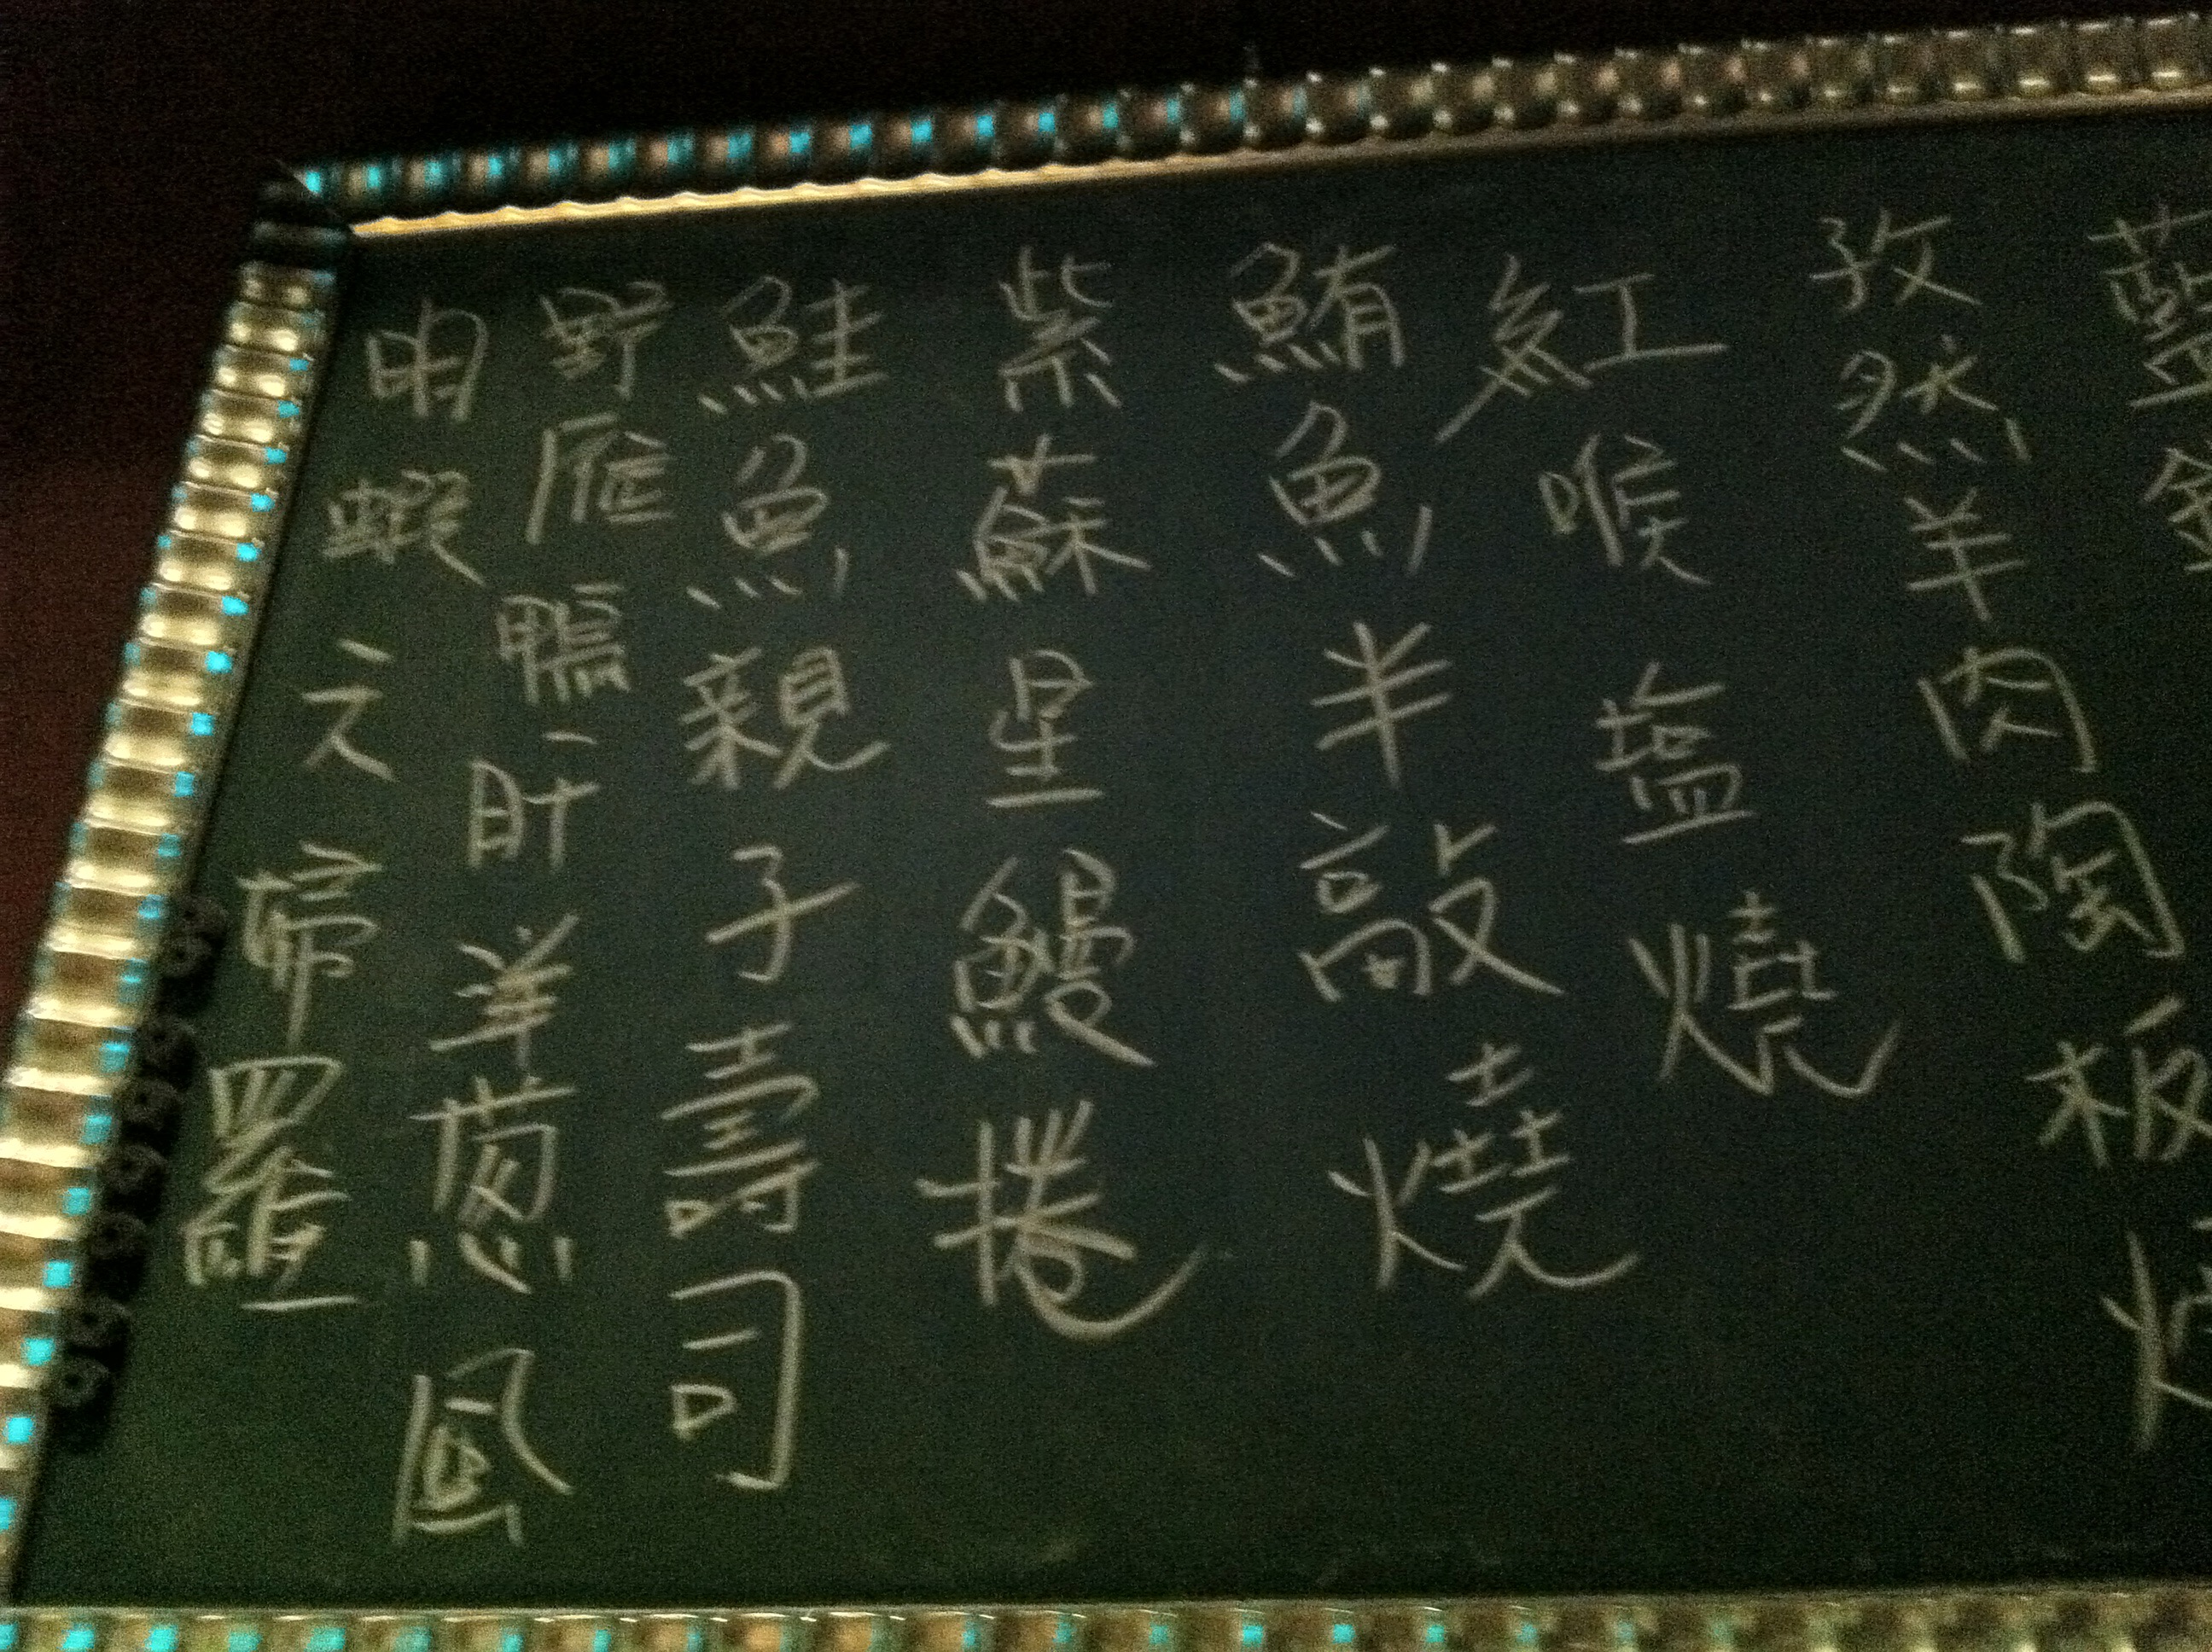 孜然羊肉陶板
紅喉塩燒
鮪魚半敲燒
紫蘇星鰻捲
鮭魚親子壽司
野雁鴨肝洋蔥風
明蝦之羅